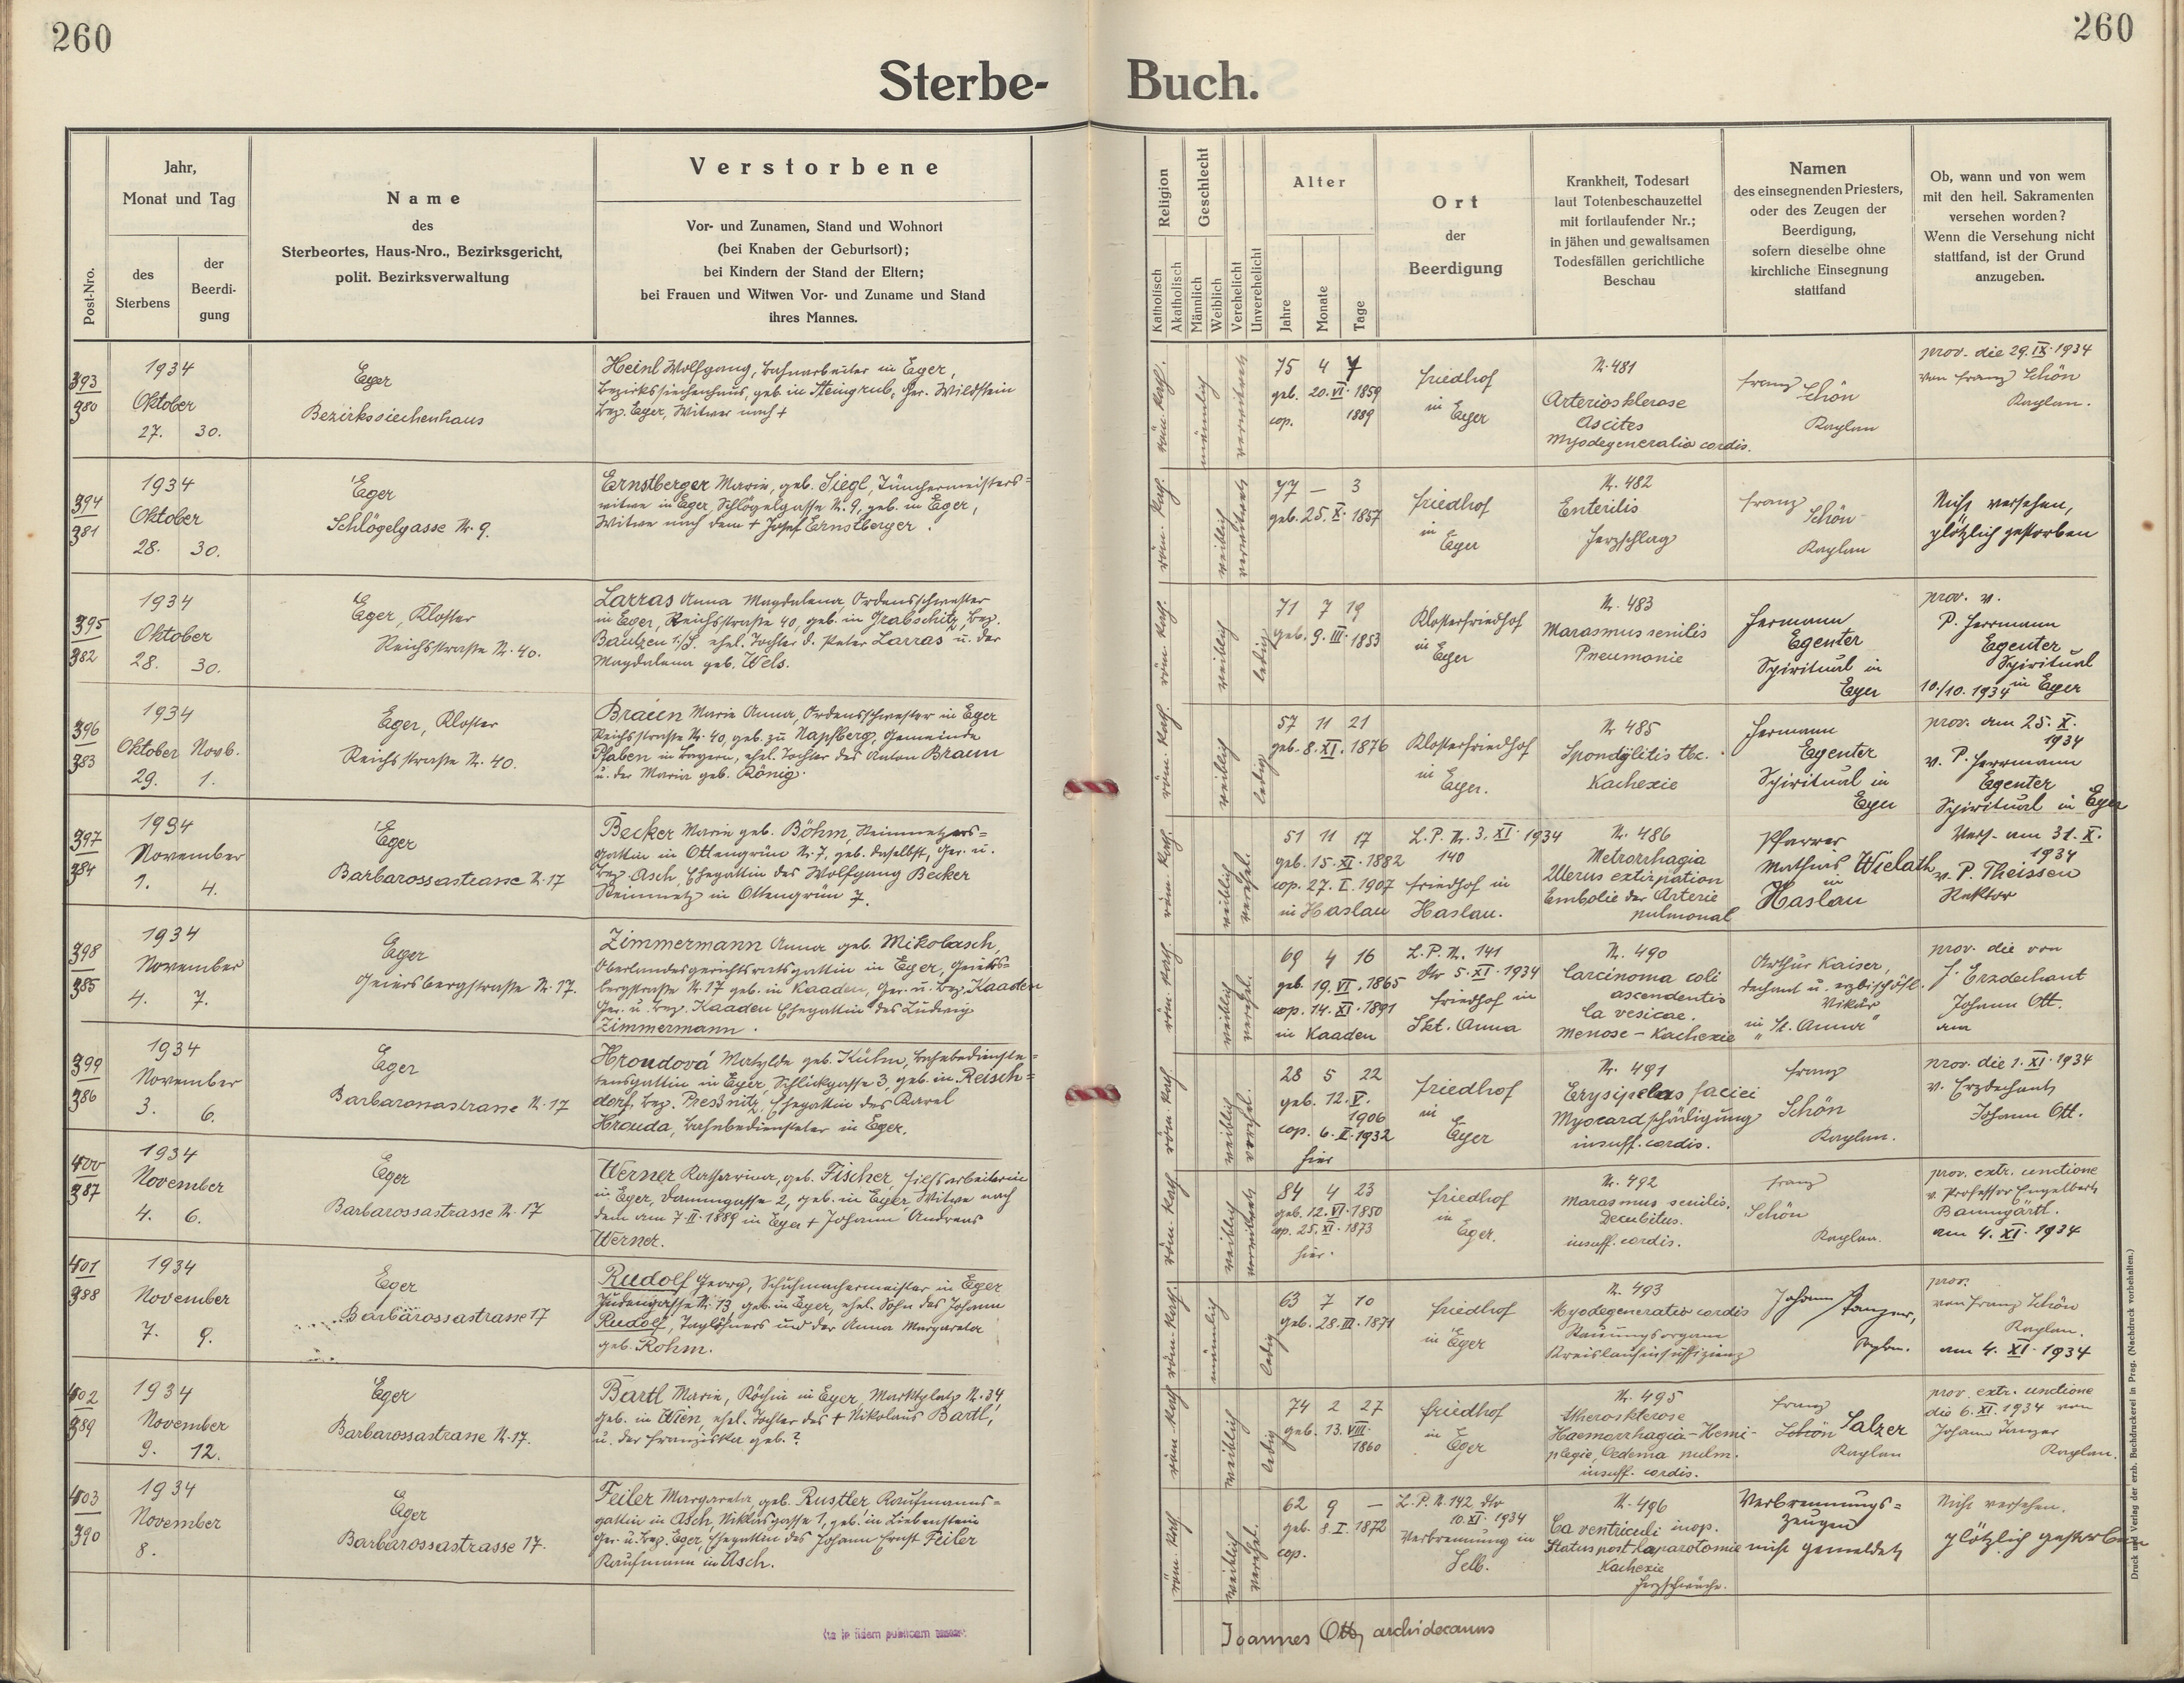 260
260
Sterbe-
Buch.
Post-Nro.
Jahr,
Monat und Tag
des
Sterbens
der
Beerdi-
gung
Name
des
Sterbeortes, Haus-Nro., Bezirksgericht,
polit. Bezirksverwaltung
Verstorbene
Vor- und Zunamen, Stand und Wohnort
(bei Knaben der Geburtsort);
bei Kindern der Stand der Eltern;
bei Frauen und Witwen Vor- und Zuname und Stand
ihres Mannes.
Religion
Katholisch
Akatholisch
Geschlecht
Männlich
Weiblich
Verehelicht
Unverehelicht
Alter
Jahre
Monate
Tage
Ort
der
Beerdigung
Krankheit, Todesart
laut Totenbeschauzettel
mit fortlaufender Nr.;
in jähen und gewaltsamen
Todesfällen gerichtliche
Beschau
Namen
des einsegnenden Priesters,
oder des Zeugen der
Beerdigung,
sofern dieselbe ohne
kirchliche Einsegnung
stattfand
Ob, wann und von wem
mit den heil. Sakramenten
versehen worden?
Wenn die Versehung nicht
stattfand, ist der Grund
anzugeben.
393
380
1934
Oktober
27. 30.
Eger
Bezirkssiechenhaus
Heinl Wolfgang, Bahnarbeiter in Eger,
Bezirkssiechenhaus, geb. in Steingrub, Ger. Wildstein
Bez. Eger, Witwer nach +
röm. kath.
männlich
verwitwet
75 4 7
geb. 20. VI. 1859
cop. 1889
Friedhof
in Eger
N. 481
Arteriosklerose
Ascites
Myodegeneratio cordis.
Franz
Schön
Kaplan
prov. die 29. IX. 1934
von Franz Schön
Kaplan.
394
381
1934
Oktober
28. 30.
Eger
Schlögelgasse N. 9.
Ernstberger Marie, geb. Siegl, Tünchermeisters=
witwe in Eger, Schlögelgasse N. 9, geb. in Eger,
Witwe nach dem + Josef Ernstberger.
röm. kath.
weiblich
verwitwet
77 — 3
geb. 25. X. 1857
Friedhof
in
Eger
N. 482
Enteritis
Herzschlag
Franz
Schön
Kaplan
Nicht versehen,
plötzlich gestorben
395
382
1934
Oktober
28. 30.
Eger, Kloster
Reichsstraße N. 40.
Larras Anna Magdalena, Ordensschwester
in Eger, Reichsstraße 40, geb. in Grabschitz, Bez.
Bautzen i./S. ehel. Tochter d. Peter Larras u. der
Magdalena geb. Wels.
röm. kath.
weiblich
ledig
71 7 19
geb. 9. III. 1853
Klosterfriedhof
in Eger
N. 483
Marasmus senilis
Pneumonie
Hermann
Egenter
Spiritual in
Eger
prov. v.
P. Herrmann
Egenter
Spiritual
10./10. 1934 in Eger
396
383
1934
Oktober Novb.
29. 1.
Eger, Kloster
Reichsstraße N. 40.
Braun Marie Anna, Ordensschwester in Eger
Reichsstraße N. 40, geb. zu Napfberg, Gemeinde
Pfaben in Bayern, ehel. Tochter des Anton Braun
u. der Maria geb. König.
röm. kath.
weiblich
ledig
57 11 21
geb. 8. XI. 1876
Klosterfriedhof
in
Eger.
N 485
Spondylitis tbc.
Kachexie
Hermann
Egenter
Spiritual in
Eger
prov. am 25. X.
1934
v. P. Herrmann
Egenter
Spiritual in Eger
397
384
1934
November
1. 4.
Eger
Barbarossastrasse N. 17
Becker Marie geb. Böhm, Steinmetzens=
gattin in Ottengrün N. 7, geb. daselbst, Ger. u.
Bez. Asch, Ehegattin des Wolfgang Becker
Steinmetz in Ottengrün 7.
röm. kath.
weiblich
verehel.
51 11 17
geb. 15. XI. 1882
cop. 27. I. 1907
in Haslau
L. P. N. 3. XI. 1934
140
Friedhof in
Haslau.
N. 486
Metrorrhagia
Uterus extirpation
Embolie der Arterie
pulmonal
Pfarrer
Mathias Wielath
in
Haslau
Vers. am 31. X.
1934
v. P. Theissen
Rektor
398
385
1934
November
4. 7.
Eger
Geiersbergstraße N. 17.
Zimmermann Anna geb. Mikolasch,
Oberlandesgerichtsratsgattin in Eger, Geiers=
bergstraße N. 17 geb. in Kaaden, Ger. u. Bez. Kaaden
Ger. u. Bez. Kaaden Ehegattin des Ludwig
Zimmermann.
röm. kath.
weiblich
verehel.
69 4 16
geb. 19. VI. 1865
cop. 14. XI. 1891
in Kaaden
L. P. N. 141
dto 5. XI. 1934
Friedhof in
Skt. Anna
N. 490
Carcinoma coli
ascendentis
Ca vesicae.
Menose - Kachexie
Arthur Kaiser,
Dechant u. erzbischöfl.
Vikär
in "St. Anna"
prov. die von
H. Erzdechant
Johann Ott.
am
399
386
1934
November
3. 6.
Eger
Barbarossastrasse N. 17
Hroudová Matylde geb. Kühn, Bahnbedienste=
tensgattin in Eger, Schlickgasse 3, geb. in Reisch=
dorf, Bez. Pressnitz, Ehegattin des Karel
Hrouda, Bahnbediensteter in Eger.
röm. kath
weiblich
verehel.
28 5 22
geb. 12. V.
1906
cop. 6. II. 1932
hier
Friedhof
in
Eger
N. 491
Erysipelas faciei
Myocardschädigung
insuff. cordis.
Franz
Schön
Kaplan.
prov. die 1. XI. 1934
v. Erzdechant
Johann Ott.
400
387
1934
November
4. 6.
Eger
Barbarossastrasse N. 17
Werner Katharina, geb. Fischer, Hilfsarbeiterin
in Eger, Dammgasse 2, geb. in Eger, Witwe nach
dem am 7. II. 1889 in Eger + Johann Andreas
Werner.
röm. kath
weiblich
verwitwet
84 4 23
geb. 12. VI. 1850
cop. 25. XI. 1873
hier.
Friedhof
in
Eger.
N. 492
Marasmus senilis,
Decubitus.
insuff. cordis.
Franz
Schön
Kaplan.
prov. extr. unctione
v. Professor Engelbert
Baumgärtl.
am 4. XI. 1934
401
388
1934
November
7. 9.
Eger
Barbarossastrasse 17
Rudolf Georg, Schuhmachermeister in Eger
Judengasse N. 13, geb. in Eger, ehel. Sohn des Johann
Rudolf, Taglöhners und der Anna Margareta
geb. Rohm.
röm. kath
männlich
ledig
63 7 10
geb. 28. III. 1871
Friedhof
in Eger
N. 493
Myodegeneratio cordis
Stauungsorgane
Kreislaufinsuffizienz
Johann Tanzer,
Kaplan.
prov.
von Franz Schön
Kaplan.
am 4. XI. 1934
402
389
1934
November
9. 12.
Eger
Barbarossastrasse N. 17.
Bartl Marie, Köchin in Eger, Marktplatz N. 34,
geb. in Wien, ehel. Tochter des + Nikolaus Bartl,
u. der Franziska geb. ?
röm. kath
weiblich
ledig
74 2 27
geb. 13. VIII.
1860
Friedhof
in
Eger
N. 495
Atherosklerose
Haemorrhagia - Hemi-
plegie, Oedema pulm.
insuff. cordis.
Franz
Schön Salzer
Kaplan
prov. extr. unctione
die 6. XI. 1934 von
Johann Tanzer
Kaplan.
403
390
1934
November
8.
Eger
Barbarossastrasse 17.
Feiler Margareta, geb. Rustler, Kaufmanns=
gattin in Asch, Niklasgasse 1, geb. in Liebenstein
Ger. u. Bez. Eger, Ehegattin des Johann Ernst Feiler
Kaufmann in Asch.
röm. kath
weiblich
verehel.
62 9 —
geb. 8. I. 1872
cop.
L. P. N. 142 dto
10. XI. 1934
Verbrennung in
Selb.
N. 496
Ca ventriculi inop.
Status post Laparotomie
Kachexie
Herzschwäche.
Verbrennungs=
zeugen
nicht gemeldet
Nicht versehen.
plötzlich gestorben
in fidem publicam
Joannes Ott, archidecanus
Druck und Verlag der erzb. Buchdruckerei in Prag. (Nachdruck vorbehalten.)